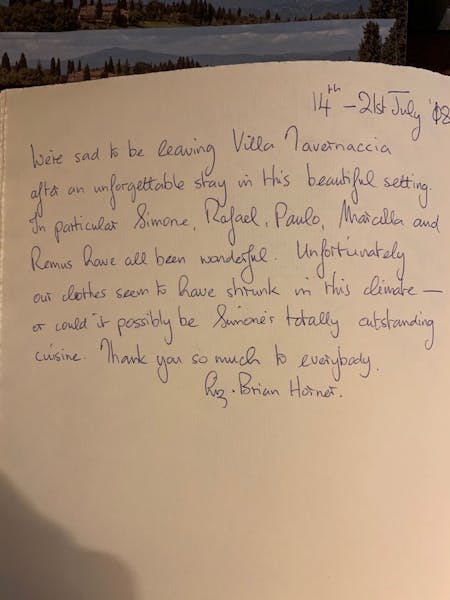 14th - 21st July '08
We're sad to be leaving Villa Tavernaccia
after an unforgettable stay in this beautiful setting.
In particular Simone, Rafael, Paulo, Marcella and
Remus have all been wonderful. Unfortunately
our clothes seem to have shrunk in this climate —
or could it possibly be Simone's totally outstanding
cuisine. Thank you so much to everybody.
Liz. Brian Horner.